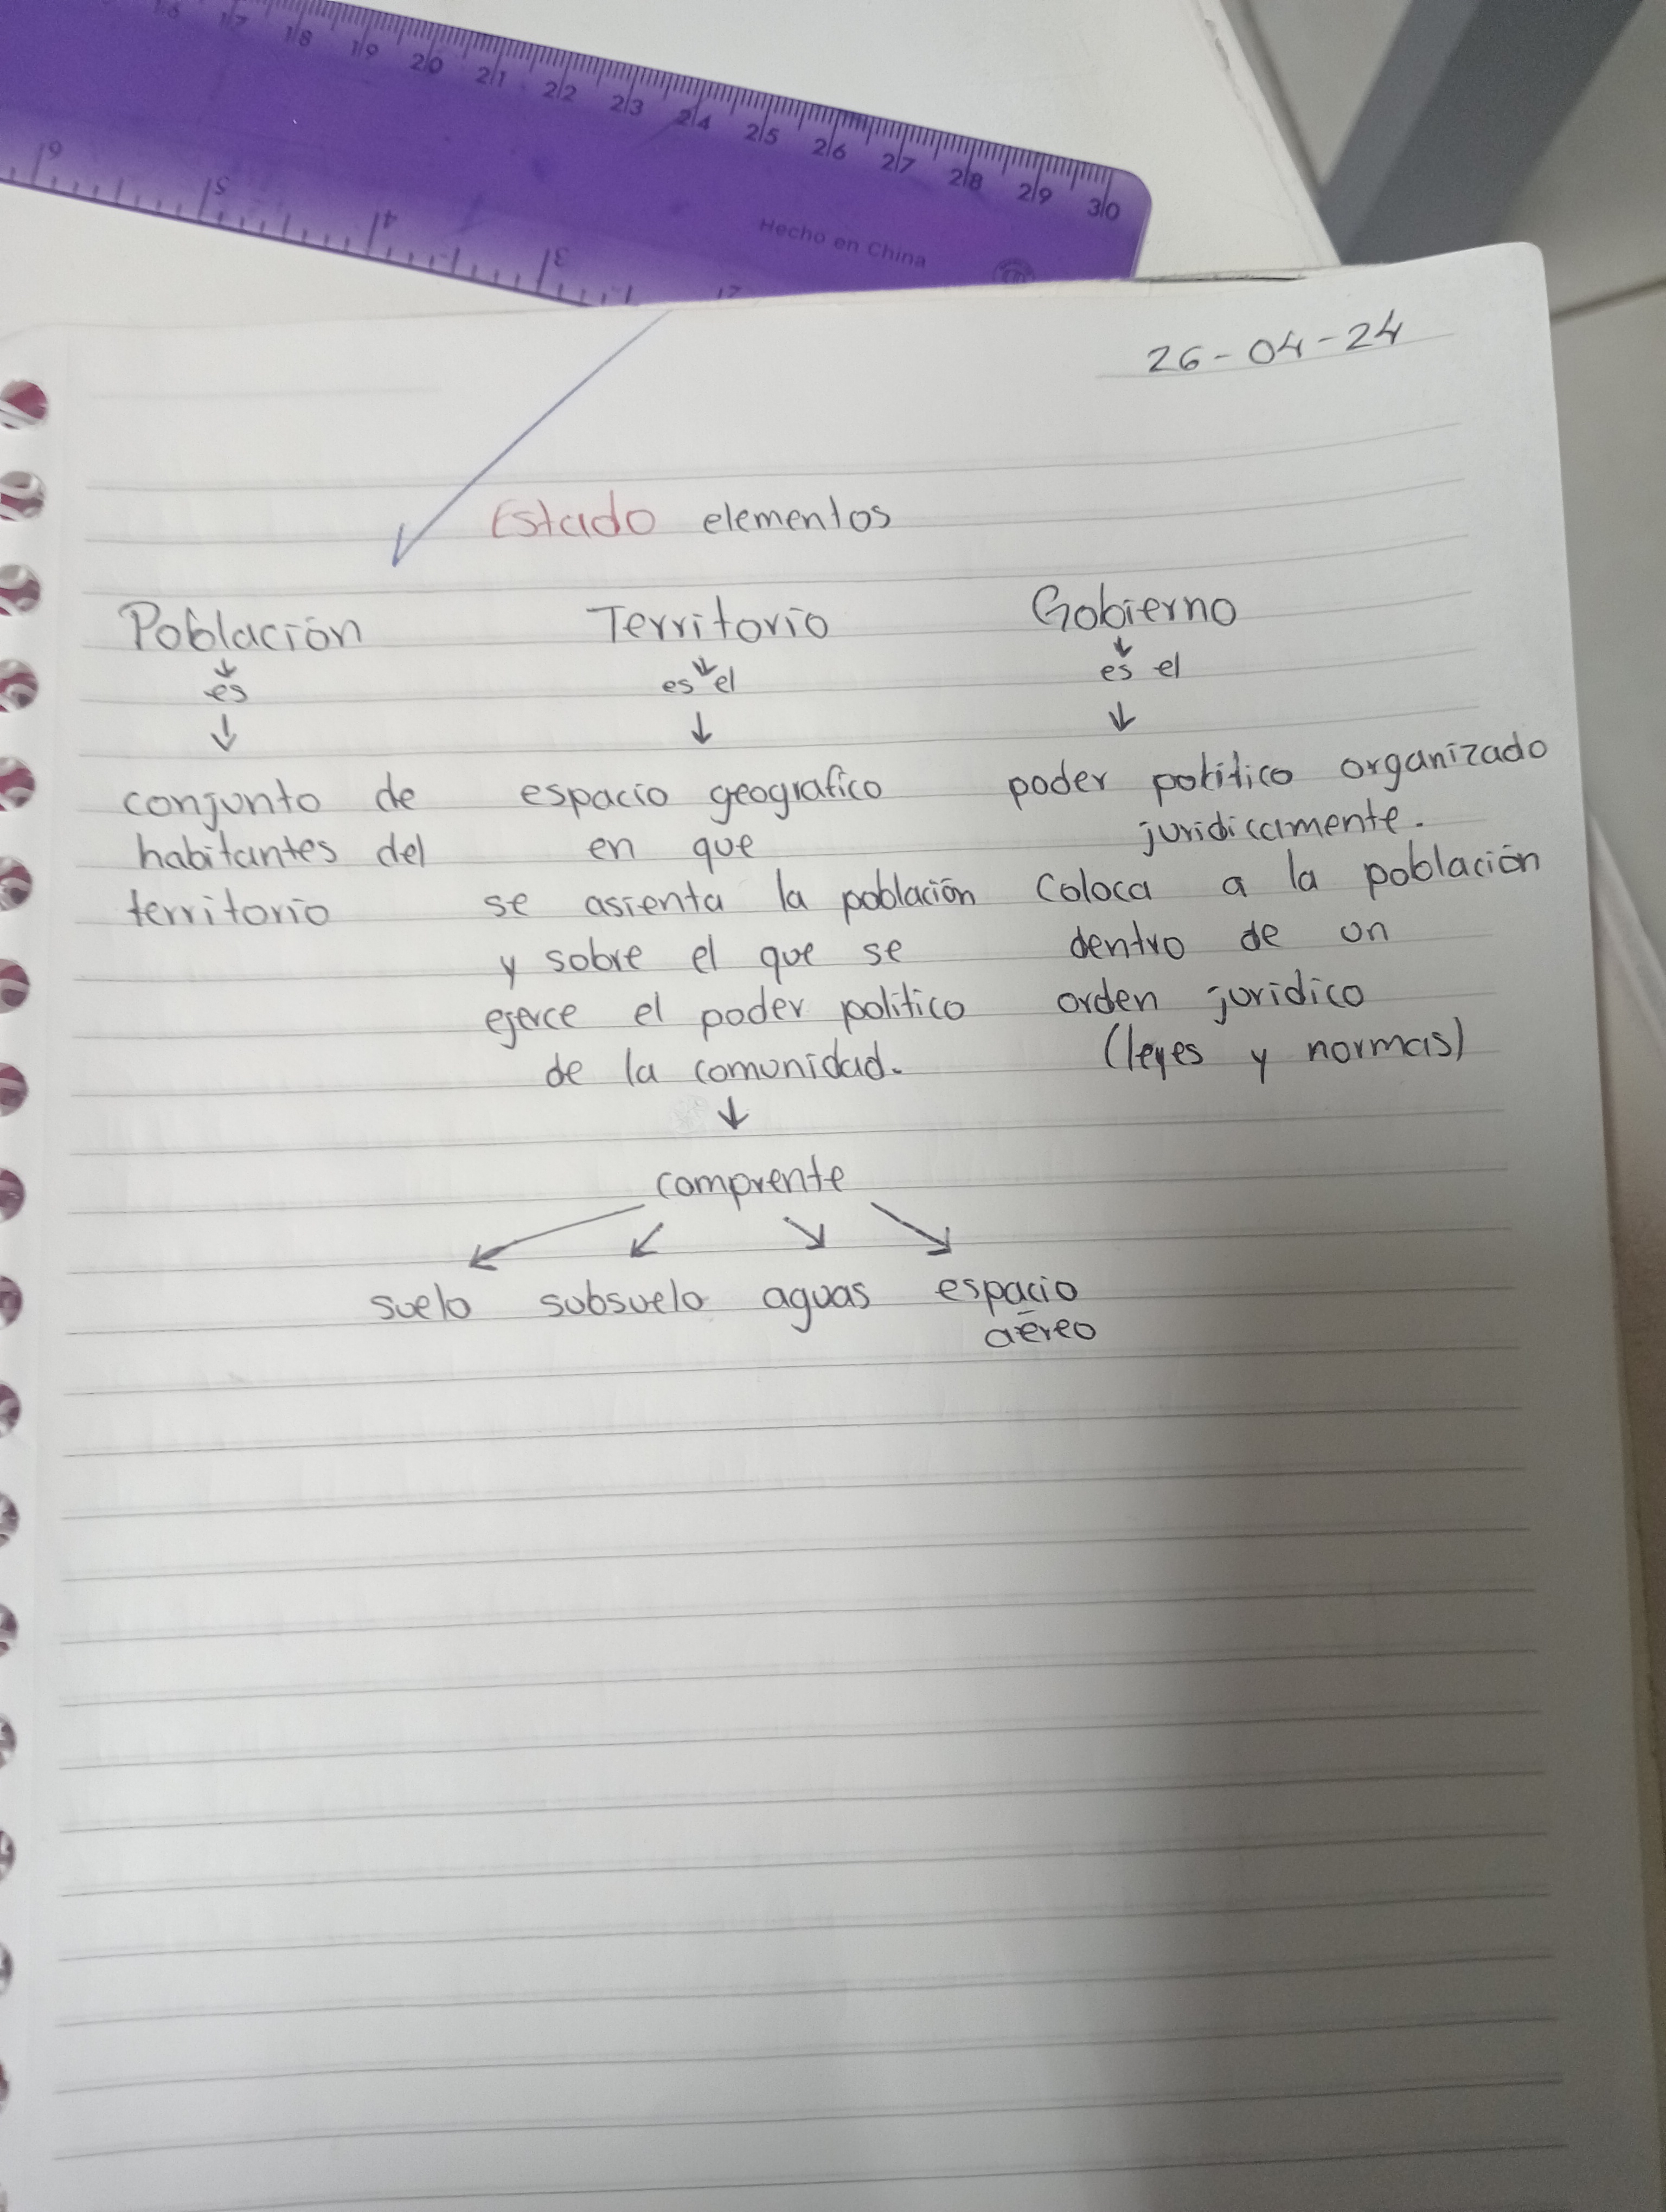 16 17 18 19 20 21 22 23 24 25 26 27 28 29 30
6 5 4 3
Hecho en China
26-04-24
Estado elementos
Población Territorio Gobierno
es es el es el
conjunto de
habitantes del
territorio
espacio geografico
en que
se asienta la población
y sobre el que se
ejerce el poder politico
de la comunidad.
comprente
suelo subsuelo aguas espacio
aéreo
poder politico organizado
juridicamente.
Coloca a la población
dentro de un
orden juridico
(leyes y normas)